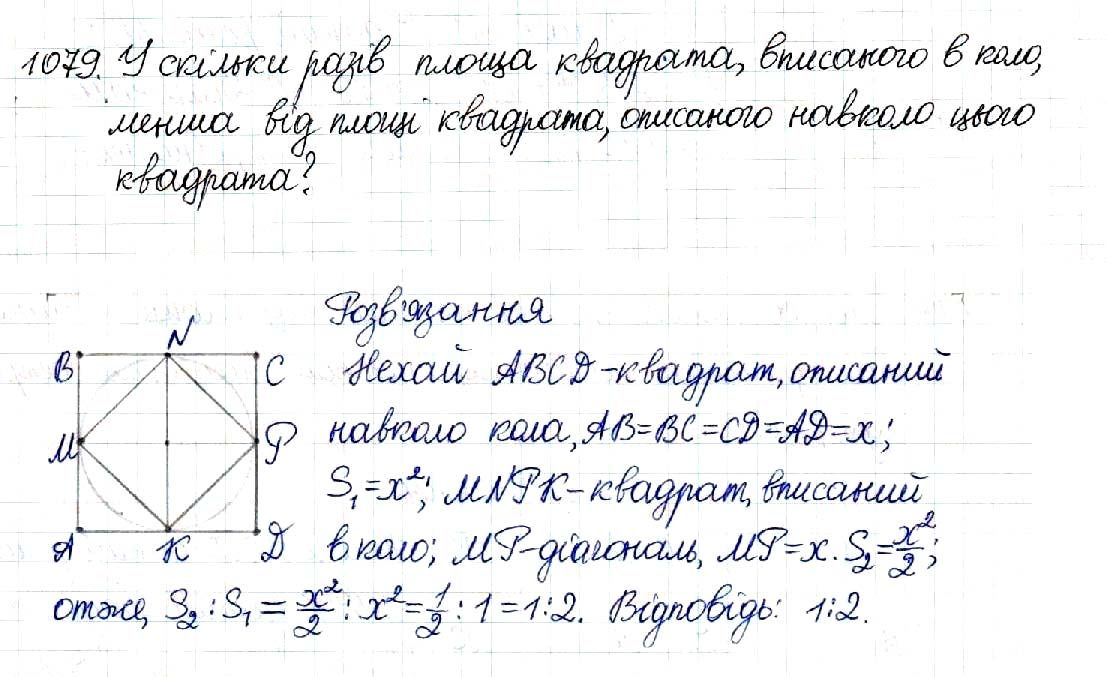 1079. У скільки разів площа квадрата, вписаного в коло,
менша від площі квадрата, описаного навколо цього
квадрата?
Розв'язання
Нехай ABCD - квадрат, описаний
навколо кола, AB=BC=CD=AD=x;
S₁=x²; MNPK - квадрат, вписаний
в коло; MP - діагональ, MP=x. S₂=x²/2;
отже, S₂ : S₁ = x²/2 : x² = 1/2 : 1 = 1:2. Відповідь: 1:2.
N
B C
M P
A K D